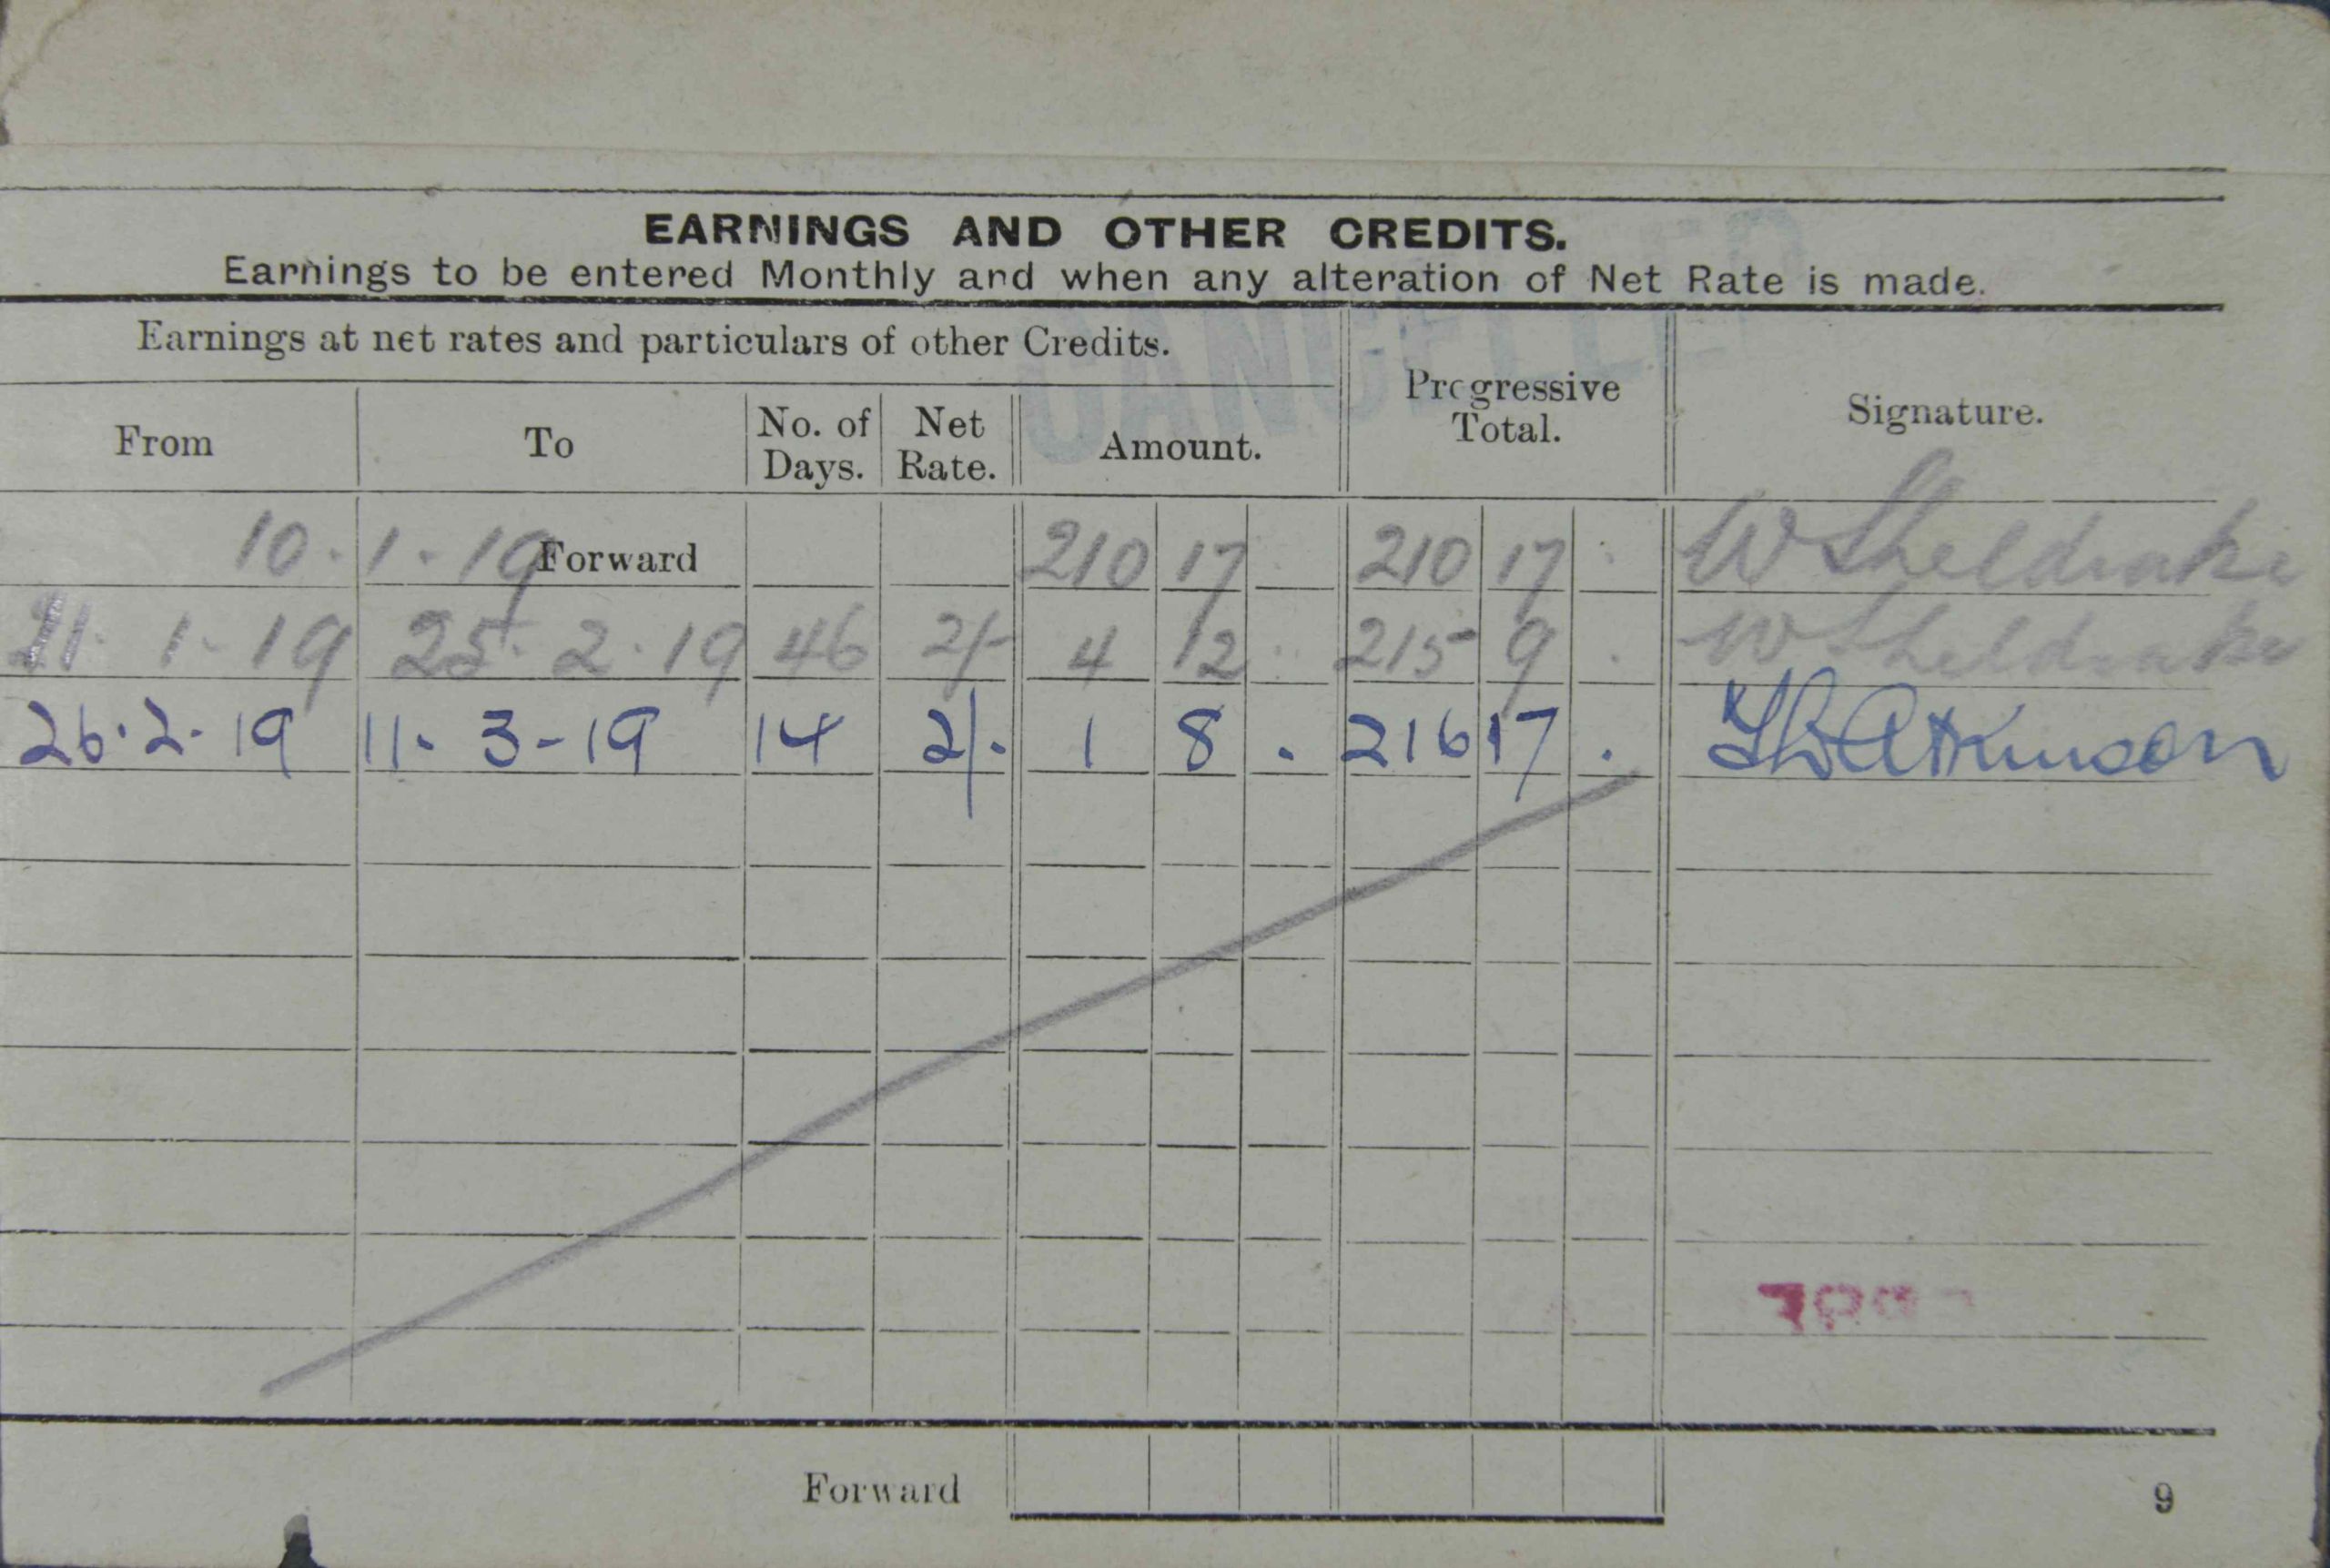 EARNINGS AND OTHER CREDITS.
Earnings to be entered Monthly and when any alteration of Net Rate is made.
CANCELLED
Earnings at net rates and particulars of other Credits.
From To No. of Days. Net Rate. Amount. Progressive Total. Signature.
10 . 1 . 19 Forward 210 17 . 210 17 . W Sheldrake
1 . 19 25 . 2 . 19 46 2/- 4 12 . 215 9 . W Sheldrake
26 . 2 . 19 11 . 3 - 19 14 2/- 1 8 . 216 17 . Atkinson
Forward
9